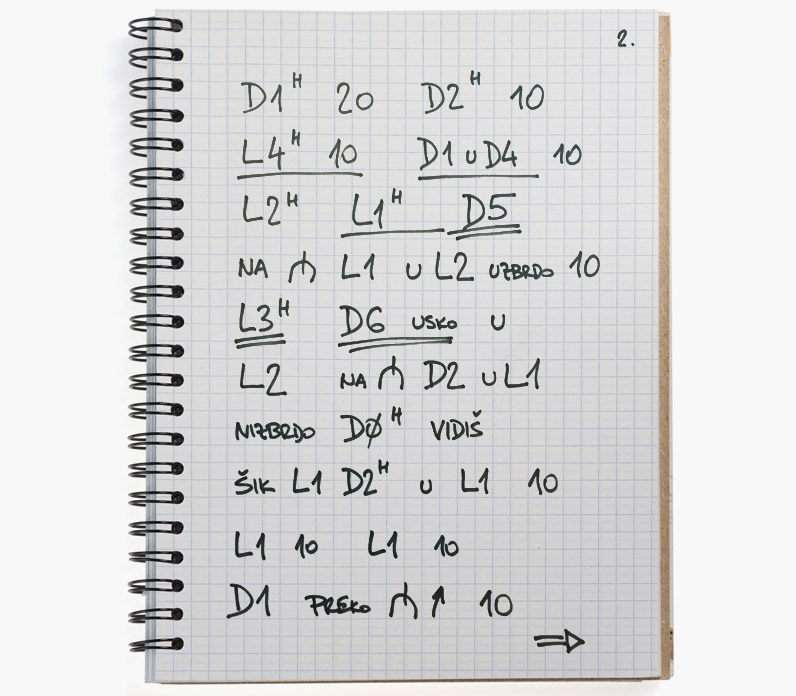 2.
D1ᴴ 20 D2ᴴ 10
L4ᴴ 10 D1 U D4 10
L2ᴴ L1ᴴ D5
NA L1 U L2 UZBRDO 10
L3ᴴ D6 USKO U
L2 NA D2 U L1
NIZBRDO DØᴴ VIDIŠ
ŠIK L1 D2ᴴ U L1 10
L1 10 L1 10
D1 PREKO ↑ 10
⇒